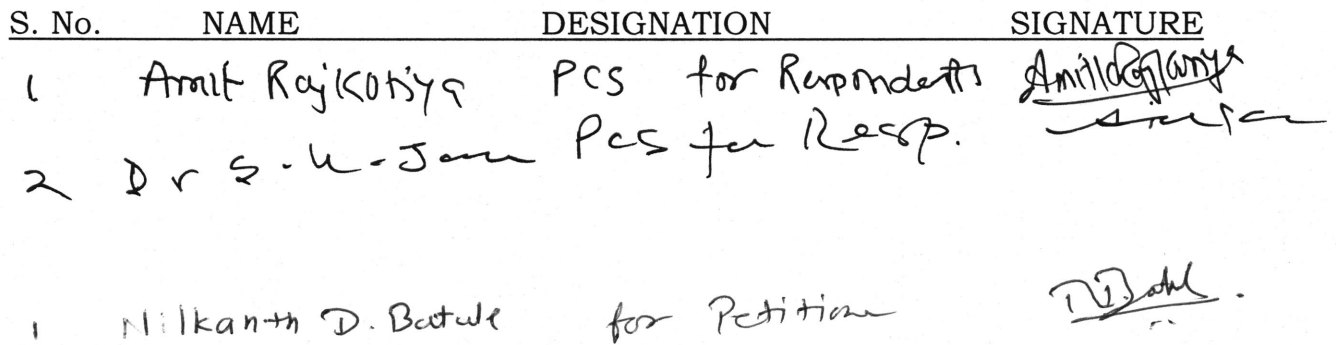 S. No. NAME DESIGNATION SIGNATURE
1 Amit Rajkotiya PCS for Respondents
2 Dr S. K. Jain PCS for Resp.
1 Nilkanth D. Batule for Petition